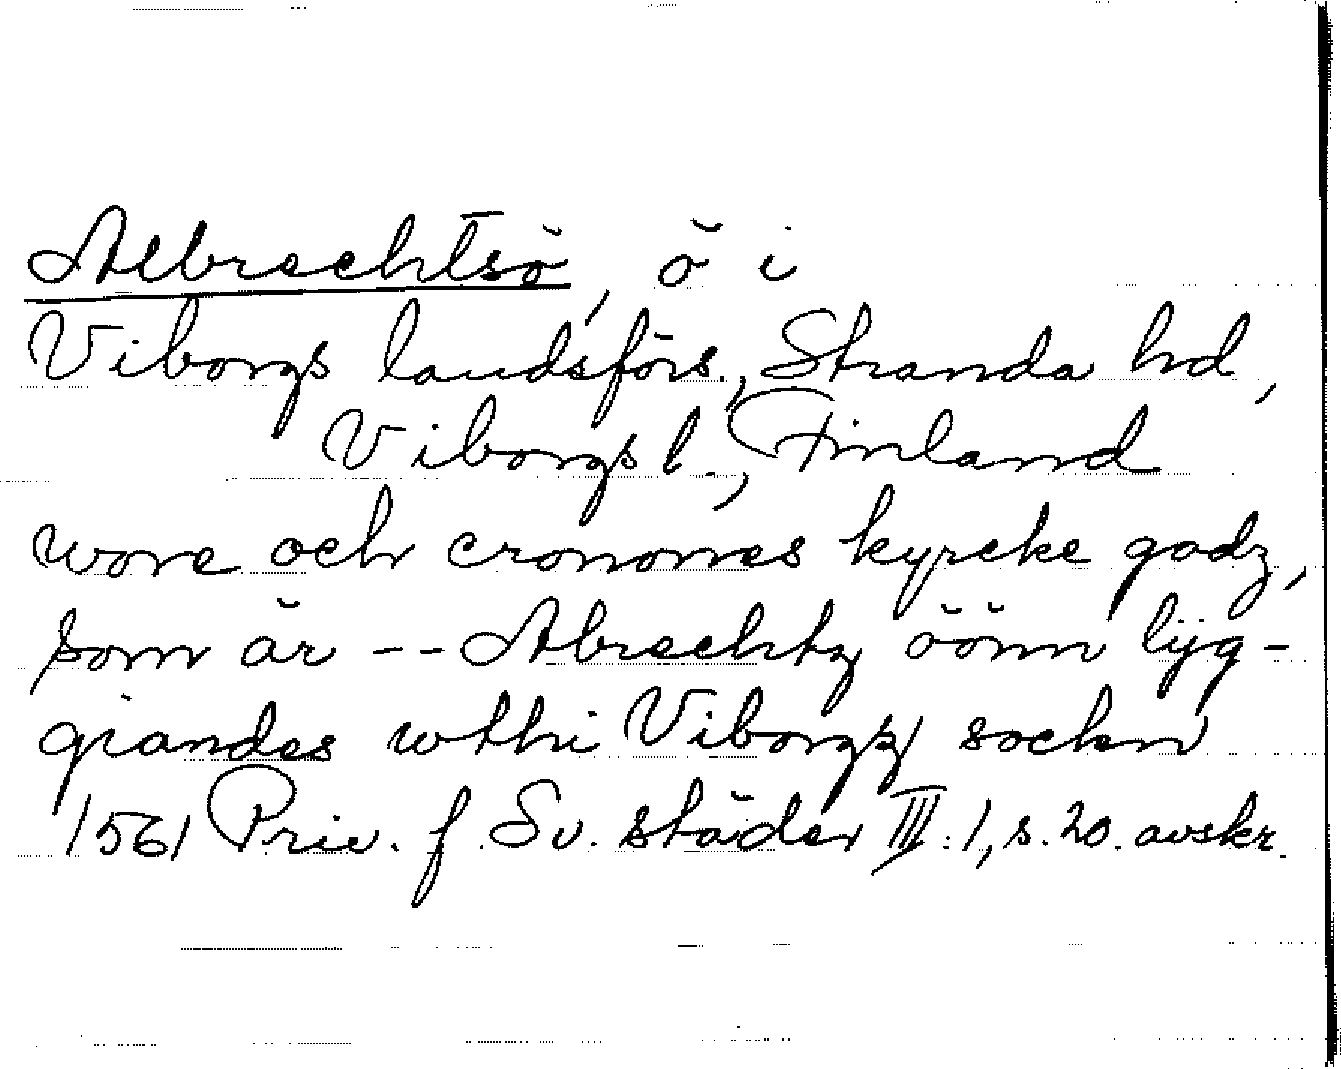 Albrechtsö, ö i
Viborgs landsförs., Stranda hd,
Viborgs l., Finland
wore och cronones kyrcke godz,
som är -- Abrechtz öönn lijg-
giandes wthi Viborgz sockn
1561 Priv. f Sv. städer III:1, s. 20. avskr.